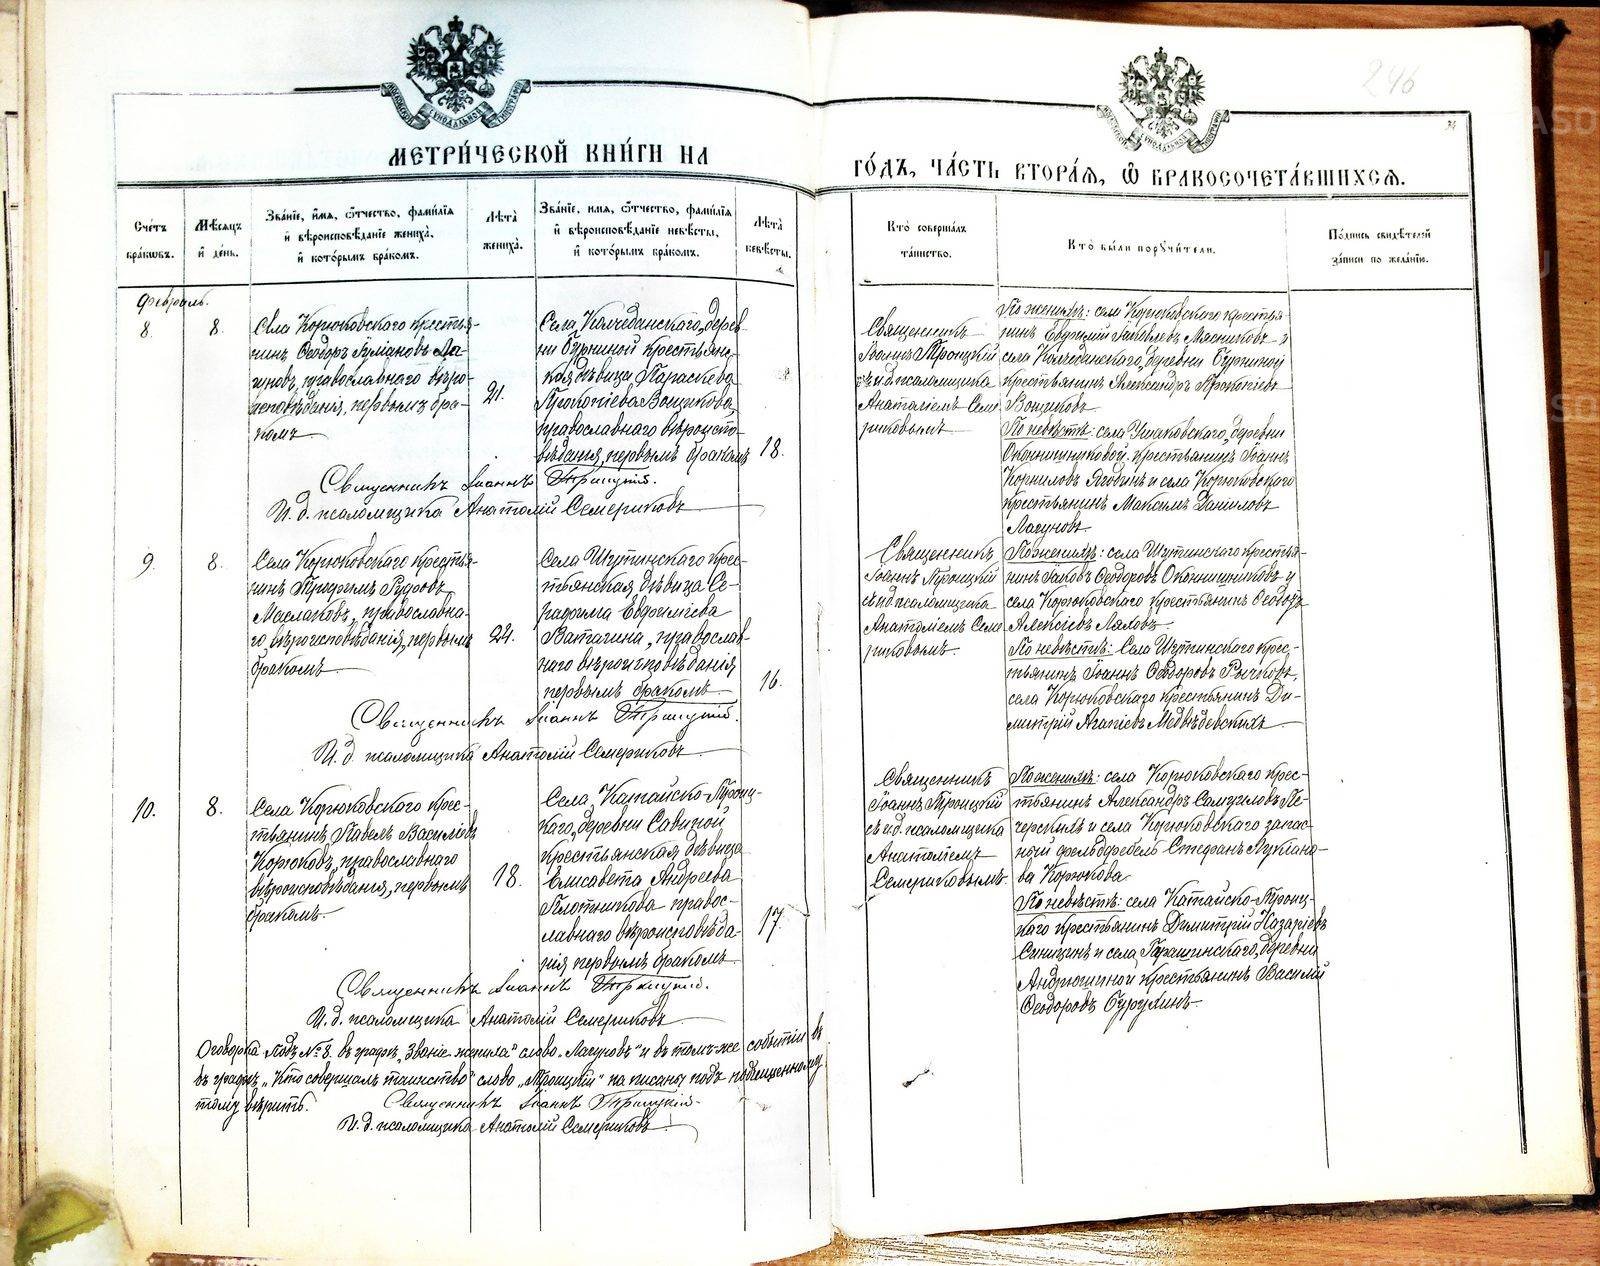 246
34
МЕТРИ́ЧЕСКОЙ КНИ́ГИ НА
ГО́ДЪ, ЧА́СТЬ ВТОРА́Я, Ѽ БРАКОСОЧЕТА́ВШИХСЯ.
Сче́тъ бра́кѡвъ.
Мѣ́сяцъ и҆ де́нь.
Зва́нїе, и҆́мя, ѻ҆́тчество, фами́лїя
и҆ вѣроисповѣ́данїе жениха̀,
и҆ кото́рымъ бра́комъ.
Лѣ́та жениха̀.
Зва́нїе, и҆мя, ѻ҆́тчество, фами́лїя
и҆ вѣроисповѣ́данїе невѣ́сты,
и҆ кото́рымъ бра́комъ.
Лѣ́та невѣ́сты.
Кто̀ соверша́лъ
та́инство.
Кто̀ бы́ли порꙋчи́тели.
По́дпись свидѣ́телей
за́писи по жела́нїю.
Февраль.
8
8.
Села Корюковскаго крестья-
нинъ Ѳеодоръ
православнаго вѣро-
исповѣданія, первымъ бра-
комъ
21.
Села Колчеданскаго, дерев-
ни Бурниной крестьянс-
кая дѣвица Параскева
Прокопіева Вощикова,
православнаго вѣроиспо-
вѣданія, первымъ бракомъ
18.
Священникъ
Іоаннъ Троицкій
съ и.д. псаломщика
Анатоліемъ Семе
риковымъ
По женихѣ: села Корюковскаго крестья-
нинъ Евдокимъ Іаковлевъ Мясниковъ и
села Колчеданскаго, деревни Бурниной
крестьянинъ Александръ Прокопіевъ
Вощиковъ
По невѣстѣ: села Ушаковскаго, деревни
Оконишниковой крестьянинъ Іоаннъ
Корниловъ Ягодинъ и села Корюковскаго
крестьянинъ Максимъ Даниловъ
Лагуновъ
Священникъ Іоаннъ Троицкій.
И. д. псаломщика Анатолій Семериковъ
9.
8.
Села Корюковскаго крестья-
нинъ Трифонъ
Маслаковъ, православна-
го вѣроисповѣданія, первымъ
бракомъ
22.
Села Шутинскаго крес-
тьянская дѣвица Се-
рафима Евфиміева
Ватагина, православ-
наго вѣроисповѣданія
первымъ бракомъ
16.
Священникъ
Іоаннъ Троицкій
съ и.д. псаломщика
Анатоліемъ Семе
риковымъ.
По женихѣ: села Шутинскаго крестья-
нинъ Іаковъ Ѳеодоровъ Оконишниковъ и
села Корюковскаго крестьянинъ Ѳеодоръ
Алексіевъ Ляховъ.
По невѣстѣ: Села Шутинскаго крес-
тьянинъ Іоаннъ Ѳеодоровъ Рычковъ,
села Корюковскаго крестьянинъ Ди-
митрій Агапіевъ Медвѣдевскихъ
Священникъ Іоаннъ Троицкій.
И. д. псаломщика Анатолій Семериковъ
10.
8.
Села Корюковскаго крес-
тьянинъ Павелъ Василіевъ
Корюковъ, православнаго
вѣроисповѣданія, первымъ
бракомъ.
18.
Села Катайско-Троиц-
каго, деревни Савиной
крестьянская дѣвица
Елисавета Андреева
Плотникова правос-
лавнаго вѣроисповѣда-
нія первымъ бракомъ
17.
Священникъ
Іоаннъ Троицкій
съ и.д. псаломщика
Анатоліемъ
Семериковымъ
По женихѣ: села Корюковскаго крес-
тьянинъ Александръ Самуиловъ Пе-
черскихъ и села Корюковскаго запас-
ной фельдфебель Стефанъ Лукіано-
ва Корюкова
По невѣстѣ: села Катайско-Троиц-
каго крестьянинъ Димитрій Назаріевъ
Синицинъ и села Гарашинскаго, деревни
Андрюшиной крестьянинъ Василій
Ѳеодоровъ Бурухинъ
Священникъ Іоаннъ Троицкій.
И. д. псаломщика Анатолій Семериковъ
Оговорка подъ № 8. въ графѣ „Званіе жениха" слово „Лагуновъ" и въ томъ-же событіи въ
въ графѣ „Кто совершалъ таинство" слово „Троицкій" написаны подъ подчищенному
тому вѣрить. Священникъ Іоаннъ Троицкій
И. д. псаломщика Анатолій Семериковъ